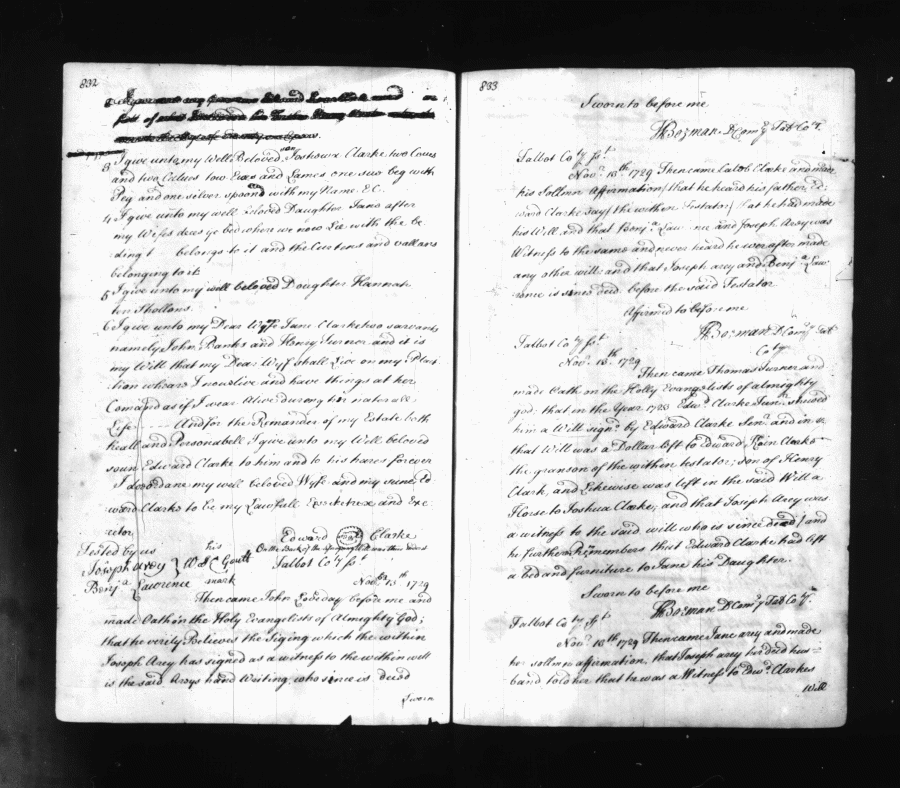 832
3 I give unto my Well Beloved son Joshowa Clarke two Cows
and two Calues tow Ewes and Lames one sow beg with
Peg and one silver spoond with my Name E C
4 I give unto my well beloved Daughter Jane after
my Wifes deces ye bed where we now Lie with the be
ding t belongs to it and the Certens and vallans
belonging to it
5 I give unto my well beloved Doughter Hannah
ten Shillons
6 I give unto my Dear Wyffe Jane Clarke two sarvants
namely John Banks and Henry Turner and it is
my Will that my Dear Wyff shall Live on my Plan
tion whoare I now live and have things at her
Comand as if I wear alive during her naterall
Life - - - And for the Remander of my Estate both
Reall and Personabell I give unto my Well beloved
soun Edward Clarke to him and to his hares forever
I do ordane my well beloved Wyfe and my sune Ed
ward Clarke to be my Lawfull Exsecktrex and Exe
cutor
Tested by us
his
Edward Clarke
On the Back of the
Joseph Arey
W S C Goutt
Talbot Coty sst
Benja Lawrence
mark
Novbr 13th 1729
Then came John Loveday before me and
made Oath on the Holy Evangelists of Almighty God;
that he verily Believes the Siging which the within
Joseph Arey has signed as a witness to the within will
is the said Areys hand Writing, who since is decd
Sworn
833
Sworn to before me
TBozman DComy Talb Coty.
Talbot Coty sst.
Novr. 18th 1729 Then came Caleb Clarke and made
his Sollmn Affirmation that he heard his father Ed:
ward Clarke say (the within Testator) that he had made
his Will and that Benja. Law ne and Joseph Arey was
Witness to the same and never heard he wer after made
any other will and that Joseph arey and Benja Law
rence is since decd. before the said Testator
Affirmed to before me
TBozman DComy Talb
Coty
Talbot Coty sst
Novr. 18th 1729
Then came Thomas Turner and
made Oath on the Holly Evangelists of almighty
god; that in the Year 1728 Edwd. Clarke Junr. shewed
him a Will signd. by Edward Clarke Senr. and in
that Will was a Dollar left to Edward Clarke
the granson of the within testator; son of Henry
Clark, and Likewise was left in the said Will a
Horse to Joshua Clarke; and that Joseph Arey was
a witness to the said will who is since decd; and
he further Remembers that Edward Clarke had left
a bed and furniture to Jane his Daughter.
Sworn to before me
TBozman DComy Talb Coty.
Talbot Coty sst.
Novr. 18th 1729 Then came Jane arey and made
her sollmn affirmation, that Joseph arey her decd hus=
band told her that he was a Witness to Edwd. Clarkes
Will